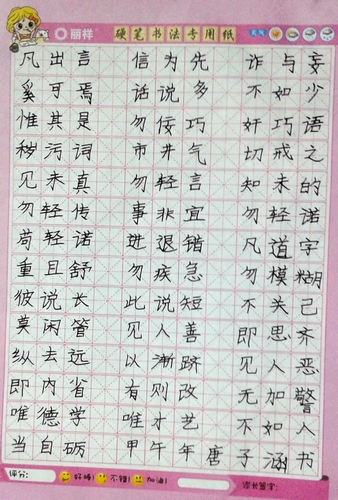 丽祥 硬笔书法专用纸
凡出言 信为先 诈与妄
奚可焉 话说多 不如少
惟其是 勿佞巧 奸巧语
秽污词 市井气 切戒之
见未真 勿轻言 知未的
勿轻传 事非宜 勿轻诺
苟轻诺 进退错 凡道字
重且舒 勿疾急 勿模糊
彼说长 此说短 不关己
莫闲管 见人善 即思齐
纵去远 以渐跻 见人恶
即内省 有则改 无加警
唯德学 唯才艺 不如人
当自砺 甲午年 唐子涵书
评分: 好棒! 不错! 加油! 家长签字: